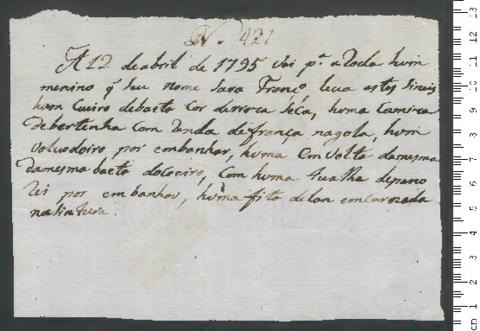 N. 421
A 12 de abril de 1795 Vai pª a Roda hum
menino q̃ seu nome sara Franco leva estes sinais
hum Cuiro de baeta Cor de rroza seca, huma Camiza
de bertenha Com Renda de frança na gola, hum
volvedoiro por embanhar, huma Em volta da mesma
da mesma baeta do Coeiro, Com huma tualha de pano
Rei por embanhar, huma fita de lan encarnada
na sintura.